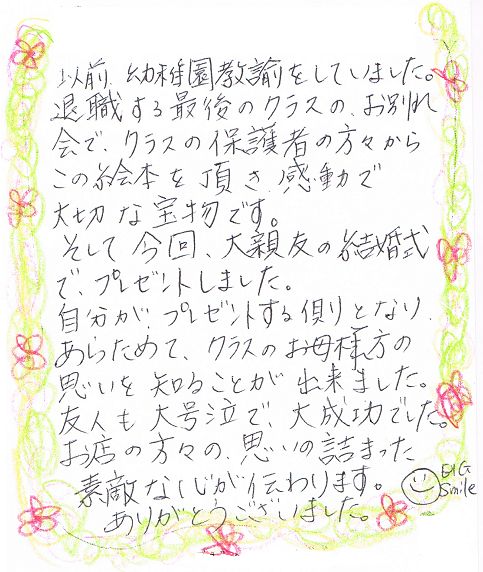 以前、幼稚園教諭をしていました。
退職する最後のクラスの、お別れ
会で、クラスの保護者の方々から
この絵本を頂き、感動で
大切な宝物です。
そして今回、大親友の結婚式
で、プレゼントしました。
自分が、プレゼントする側りとなり、
あらためて、クラスのお母様方の
思いを知ることが出来ました。
友人も大号泣で、大成功でした。
お店の方々の、思いの詰まった
素敵な心が伝わります。
ありがとうございました。
BIG
Smile